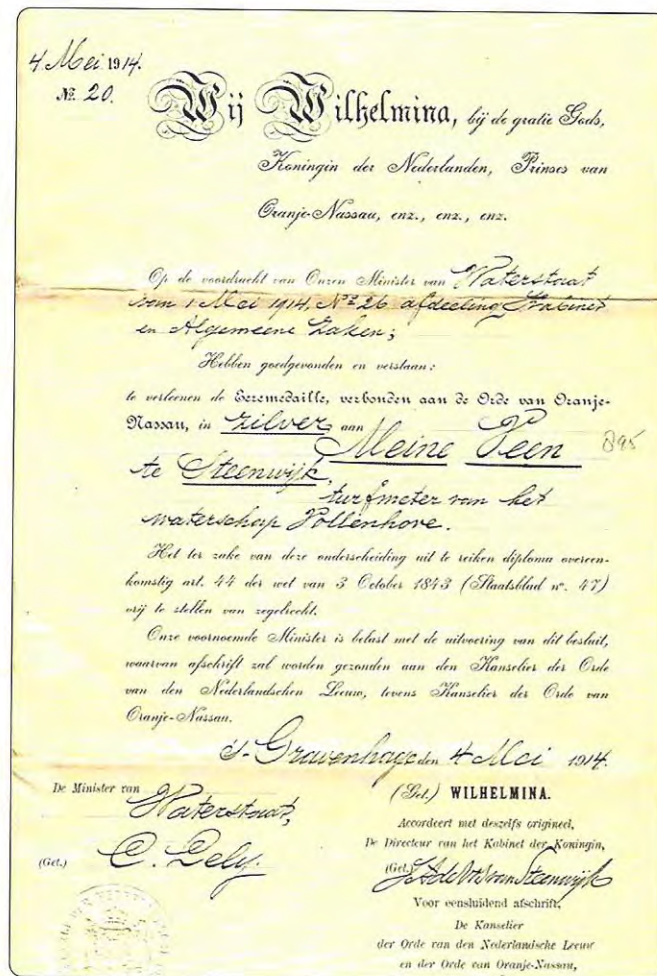 4 Mei 1914.
No. 20.
Wij Wilhelmina, bij de gratie Gods,
Koningin der Nederlanden, Prinses van
Oranje-Nassau, enz., enz., enz.
Op de voordracht van Onzen Minister van Waterstaat
van 1 Mei 1914, No 26 afdeeling Kabinet
en Algemeene Zaken;
Hebben goedgevonden en verstaan:
te verleenen de Eeremedaille, verbonden aan de Orde van Oranje-
Nassau, in zilver aan
Meine Veen 895
te Steenwijk,
turfmeter van het
waterschap Vollenhove.
Het ter zake van deze onderscheiding uit te reiken diploma overeen-
komstig art. 44 der wet van 3 October 1843 (Staatsblad no. 47)
vrij te stellen van zegelrecht.
Onze voornoemde Minister is belast met de uitvoering van dit besluit,
waarvan afschrift zal worden gezonden aan den Kanselier der Orde
van den Nederlandschen Leeuw, tevens Kanselier der Orde van
Oranje-Nassau.
's-Gravenhage den 4 Mei 1914.
De Minister van
Waterstaat,
(Get.) C. Lely.
(Get.) WILHELMINA.
Accordeert met deszelfs origineel,
De Directeur van het Kabinet der Koningin,
(Get.) de Vos van Steenwijk
Voor eensluidend afschrift,
De Kanselier
der Orde van den Nederlandsche Leeuw
en der Orde van Oranje-Nassau,